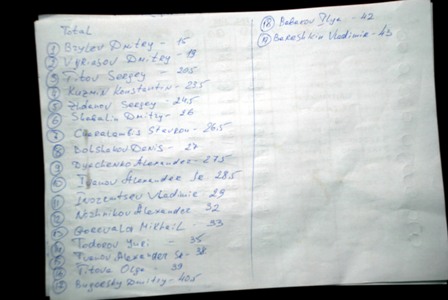 Total
1 Bzylev Dmitry - 15
2 Dmitry - 19
3 Titov Sergey - 20.5
4 Kuzmin Konstantin - 23.5
5 Zhdanov Sergey - 24.5
6 Shabalin Dmitry - 26
7 Charalambis Stavrou - 26.5
8 Bolshakov Denis - 27
9 Dyachenko Alexander - 27.5
10 Ivanov Alexander 28.5
11 Vladimir 29
12 Nozhnikov Alexander 32
13 Mikhail - 33
14 Todorov Yuri - 35
15 Ivanov Alexander - 38
16 Titova Olga - 39
17 Bogorsky Dmitry - 40.5
18 Ilya - 42
19 Vladimir - 43